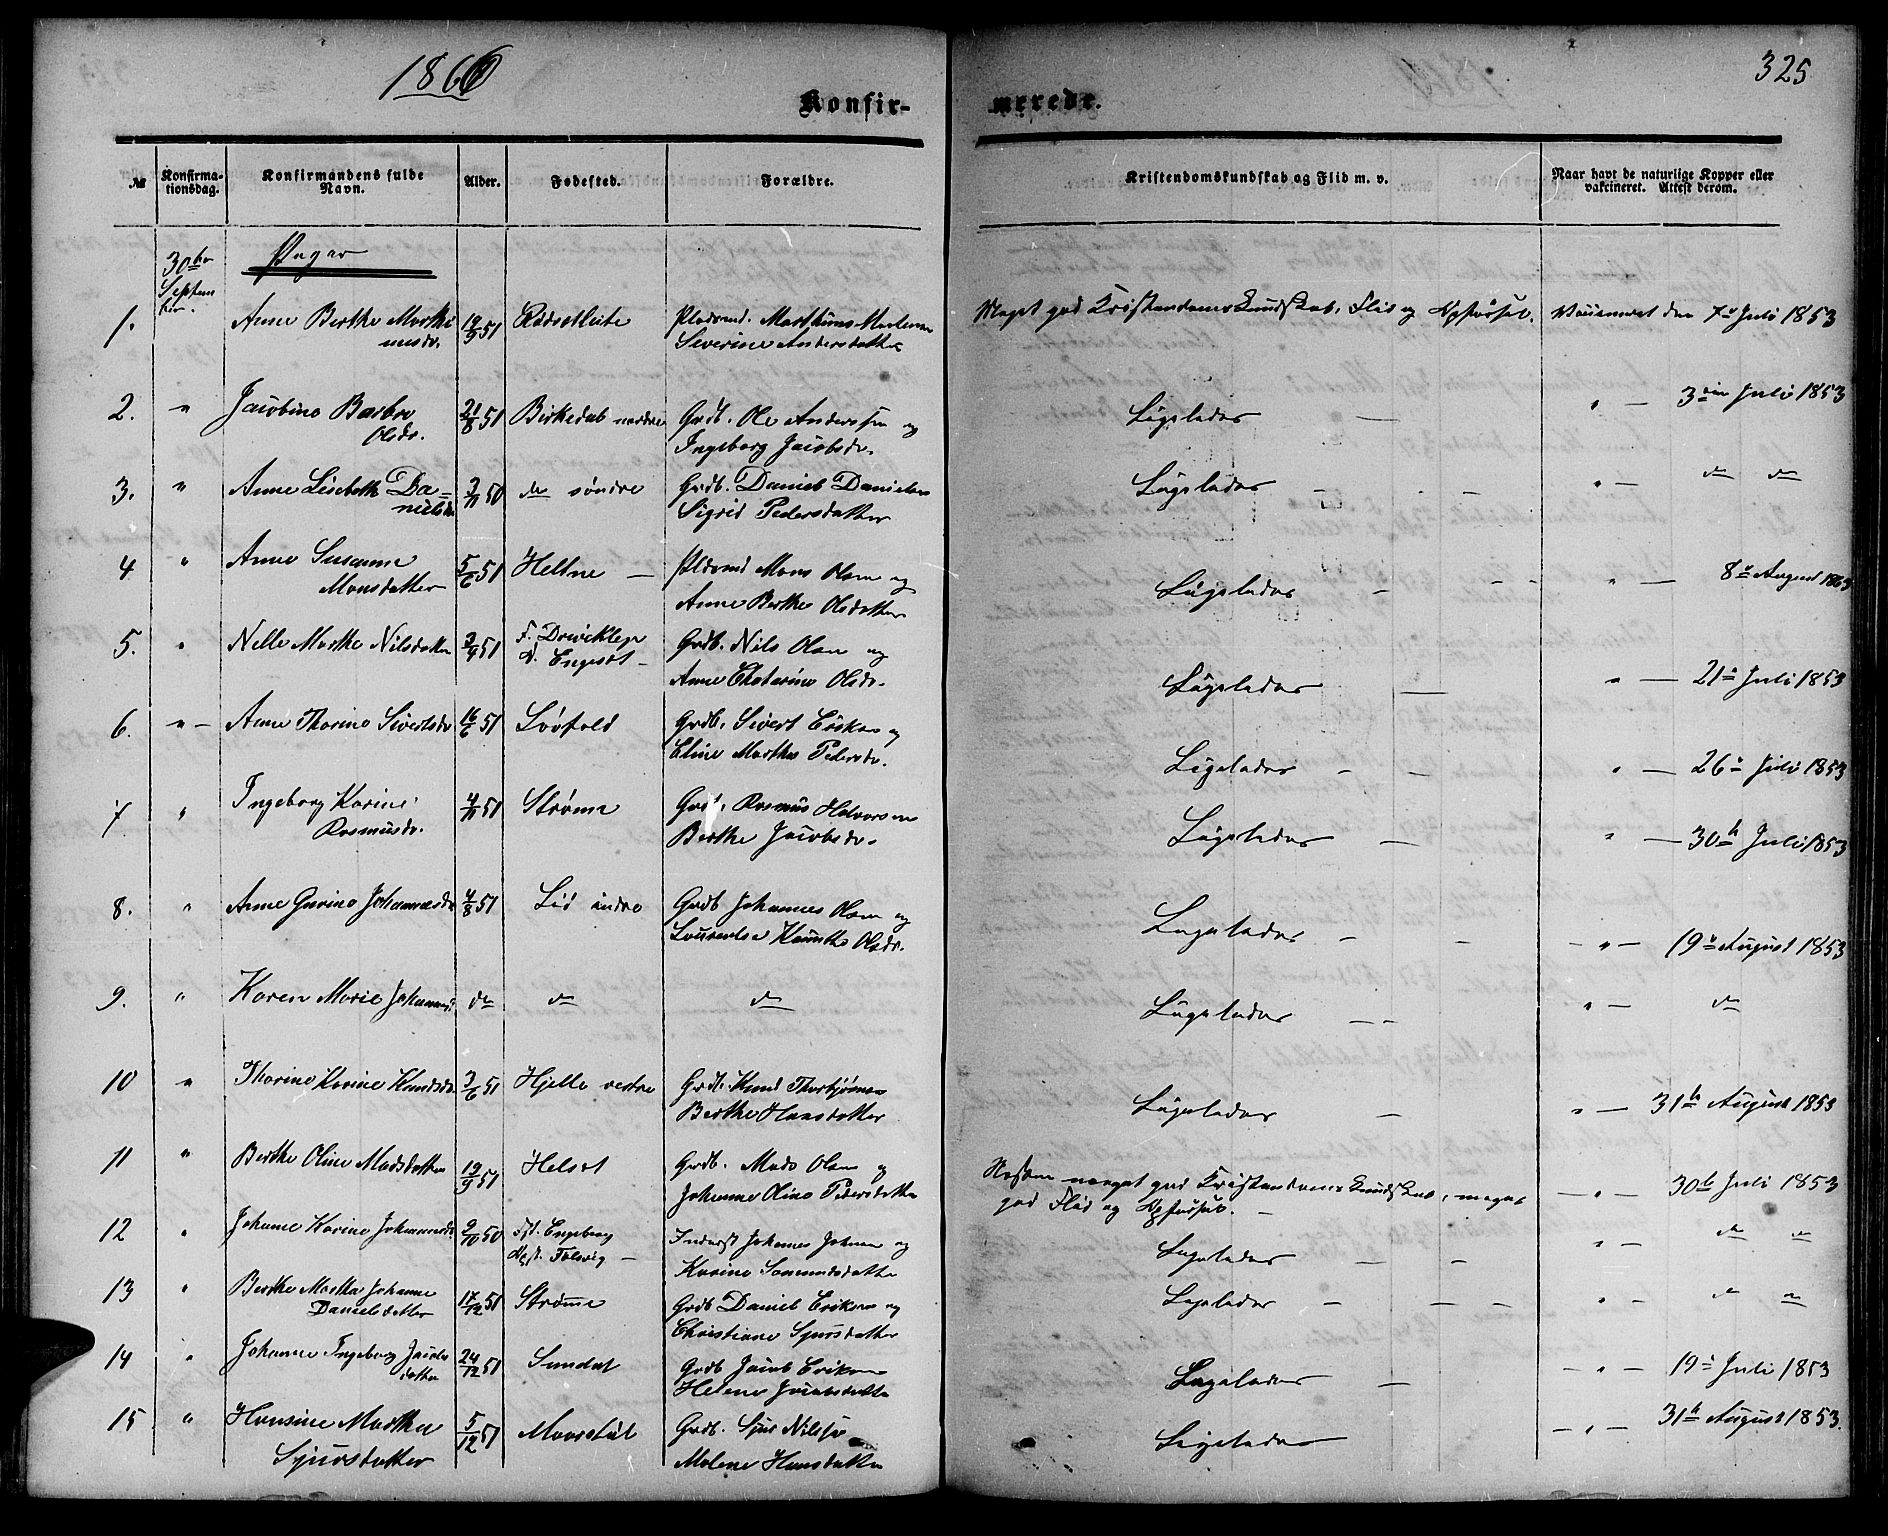 1866
325
Konfir-
merede.
№
Konfirma-
tionsdag.
Konfirmandens fulde
Navn.
Alder.
Fødested.
Forældre.
Kristendomskundskab og Flid m. v.
Naar havt de naturlige Kopper eller
vakcineret. Attest derom.
30te
Septem
ber.
Piger
1. Anne Berthe Marthi
nusdr. 19/9 51
Martinus Martensen
Severine Andersdatter
Meget god Kristendomskundskab, Flid og Opførsel. Vaccineret den 7de Juli 1853
2. " Jacobine Barbro
Olsdr. 21/8 51 Birkedal nordre Grdb. Ole Anderssen og
Ingeborg Jacobsdr.
Ligeledes — " — 3die Juli 1853
3. " Anne Lisebeth Da=
nielsdr 3/11 50 do søndre Grdb. Daniel Danielsen
Sigrid Pedersdatter
Ligeledes — - " — do do
4 " Anne Susanne
Monsdatter 5/6 51 Heltne — Pladsmd Mons Olsen og
Anne Berthe Olsdatter
Ligeledes — " — 8de August 1853
5. " Nelle Marthe Nilsdatter 3/4 51 F.
d. Engeset — Grdb. Nils Olsen og
Anne Chatarine Olsdr.
Ligeledes — " — 21de Juli 1853
6. " — Anne Thorine Sivertsdr 16/6 51 Løvfold Grdb. Sivert
Eline Marthe Pedersdr.
Ligeledes — — " — 26de Juli 1853
7 " Ingeborg Karine
Rasmusdr. 4/11 51 Strømme Grdb. Rasmus Halvorsen
Berthe Jacobsdr.
Ligeledes — — " — 30te Juli 1853
8. " Anne Gurine Johannesdr 4/8 51 Lid indre Grdb Johannes Olsen og
Olsdr.
Ligeledes — — — " — 19de August 1853
9. " Karen Marie Johannes do do do
Ligeledes — — " — do
10 " Thorine Karine Knudsdr 3/6 51 Hjelle vestre Grdb. Knud Thorbjørnsen
Berthe Hansdatter
Ligeledes — " — 31te August 1853
11 " Berthe Oline Madsdatter 19/9 51 Helset Grdb. Mads Olsen og
Johanne Oline Pedersdatter
Næsten meget god Kristendomskundskab, meget
god Flid og Opførsel. — — " — 30te Juli 1853
12 " Johanne Karine Johannesdr 9/10 50 Engeberg
Johannes Johnsen og
Karine
Ligeledes — " — do do
13 " Berthe Martha Johanne
Danielsdatter 17/12 51 Strømme Grdb Daniel Eriksen og
Christiane Sjursdatter
Ligeledes — — — " — do do
14 " Johanne Ingeborg Jacobs
datter 24/12 51 Sundal Grdb Jacob Eriksen
Helene Jacobsdatter
Ligeledes — — " — 19de Juli 1853
15 " Hansine Martha
Sjursdatter 5/12 51 Grdb. Sjur Nilssen
Malene Hansdatter
Ligeledes — " — 31te August 1853.